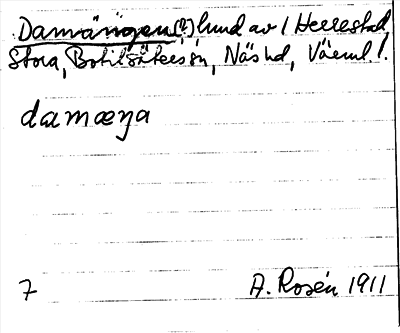 Damängen(?) lund av / Herrestad,
Stora, Botilsäters sn, Näs hd, Värml /.
damæŋa
7 A. Rosén 1911